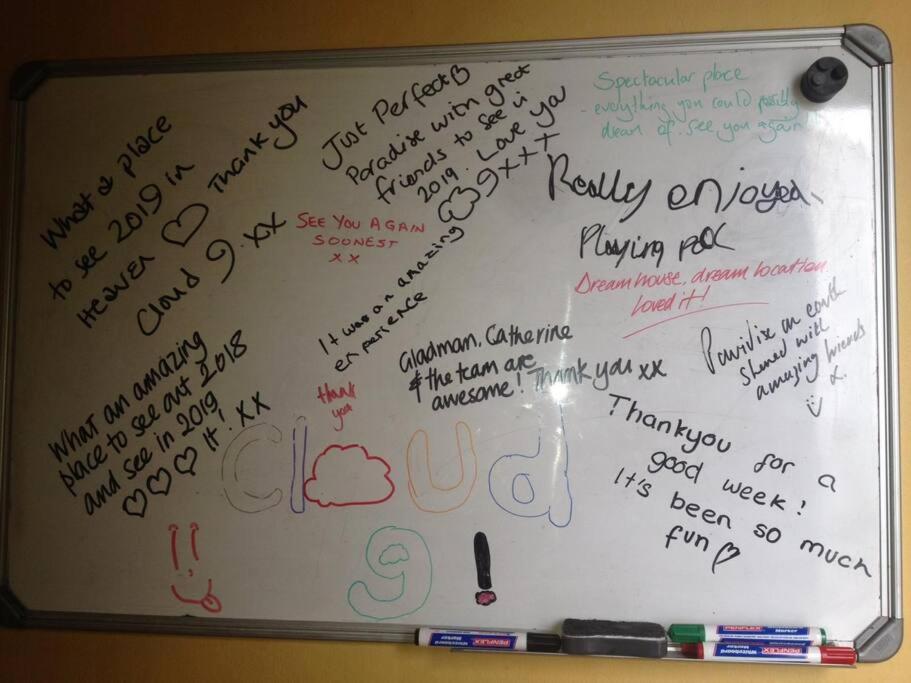 What a place
to see 2019 in
Heaven ♡ Thank you
Cloud 9. xx
Just Perfect
Paradise with great
friends to see in
2019. Love you
9 x x x
SEE YOU AGAIN
SOONEST
x x
It was an amazing
experience
Spectacular place
- everything you could possibly
dream of. see you again
Really enjoyed
Playing pool
Dream house, dream location
loved it!
on earth
shared with
amazing friends
What an amazing
place to see out 2018
and see in 2019
♡♡♡ It! xx
thank
you
Gladman, Catherine
& the team are
awesome! Thank you xx
Thankyou for a
good week!
It's been so much
fun ♡
Cloud
9!
PENFLEX
Whiteboard
Marker
Marker
PENFLEX
PENFLEX
Whiteboard
Marker